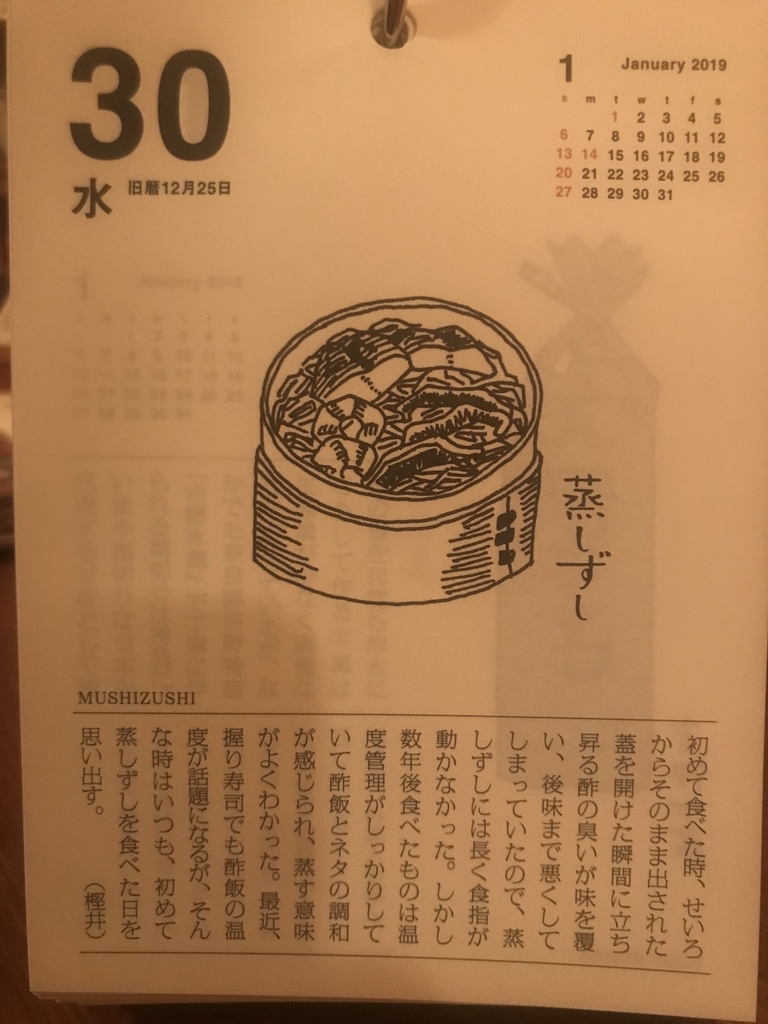 30
水 旧暦12月25日
1 January 2019
s m t w t f s
1 2 3 4 5
6 7 8 9 10 11 12
13 14 15 16 17 18 19
20 21 22 23 24 25 26
27 28 29 30 31
蒸しずし
MUSHIZUSHI
初めて食べた時、せいろ
からそのまま出された
蓋を開けた瞬間に立ち
昇る酢の臭いが味を覆
い、後味まで悪くして
しまっていたので、蒸
しずしには長く食指が
動かなかった。しかし
数年後食べたものは温
度管理がしっかりして
いて酢飯とネタの調和
が感じられ、蒸す意味
がよくわかった。最近、
握り寿司でも酢飯の温
度が話題になるが、そん
な時はいつも、初めて
蒸しずしを食べた日を
思い出す。 （樫井）